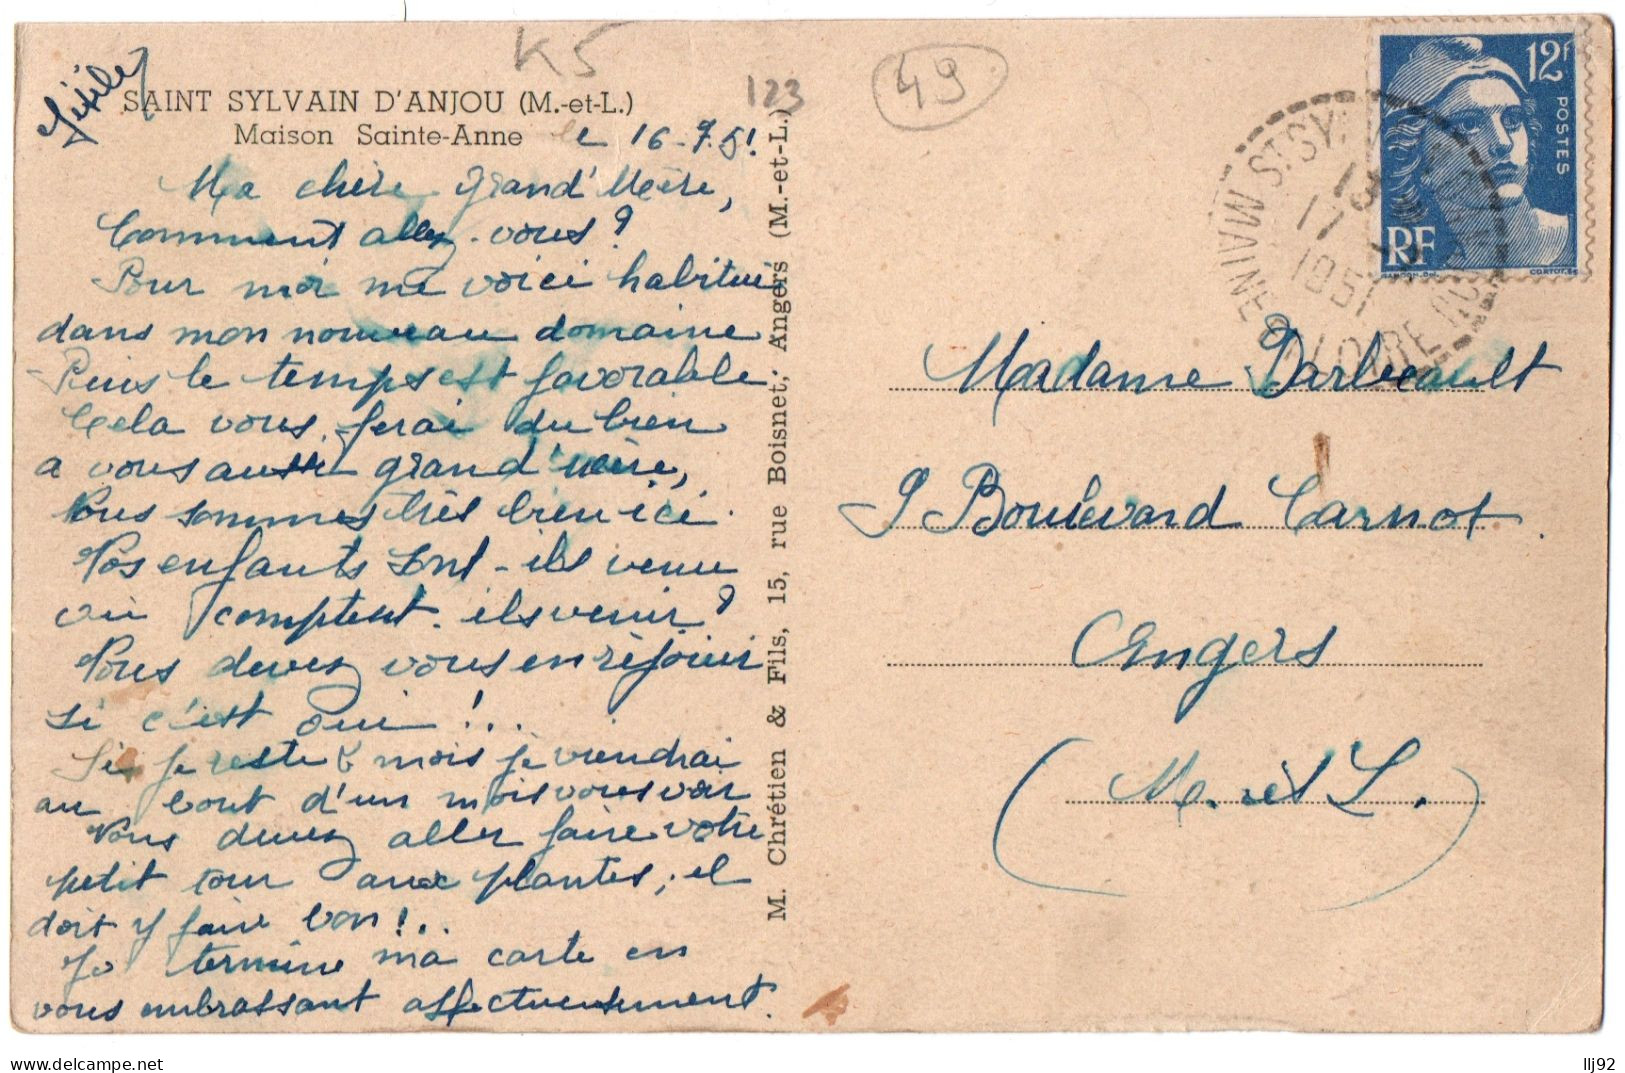 K5
123
49
SAINT SYLVAIN D'ANJOU (M.-et-L.)
Maison Sainte-Anne
le 16-7.51.
Ma chère grand'Mère,
Comment allez-vous?
Pour moi me voici habitué
dans mon nouveau domaine
Puis le temps est favorable.
Cela vous ferai du bien
a vous aussi grand'mère,
Nous sommes très bien ici.
Vos enfants sont-ils venu
ou comptent-ils venir?
Vous devez vous en réjouir
si c'est oui!...
Si je reste 2 mois je viendrai
au bout d'un mois vous voir
Vous devez aller faire votre
petit tour aux plantes, il
doit y faire bon!...
Je termine ma carte en
vous embrassant affectueusement.
M. Chrétien & Fils, 15, rue Boisnet, Angers (M.-et-L.)
12f
POSTES
RF
GANDON.del.
CORTOT.sc
ST. SYLVAIN D'ANJOU
MAINE ET LOIRE
13
17
1951
Madame Darbeault
9 Boulevard Carnot.
Angers
(M. et L.)
delcampe.net
llj92